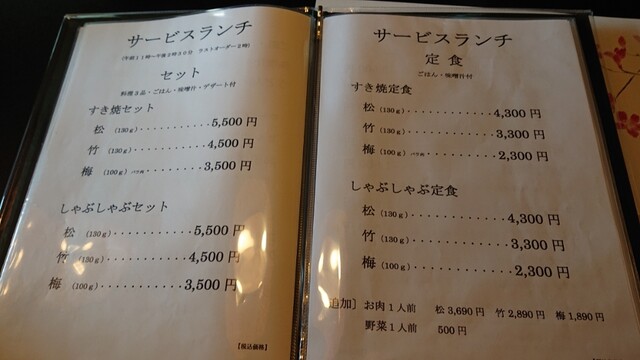 サービスランチ
(午前11時〜午後2時30分 ラストオーダー2時)
セット
料理3品・ごはん・味噌汁・デザート付
すき焼セット
松 (130g)...........5,500円
竹 (130g)...........4,500円
梅 (100g) バラ肉........3,500円
しゃぶしゃぶセット
松 (130g)............5,500円
竹 (130g)............4,500円
梅 (100g)............3,500円
【税込価格】
サービスランチ
定食
ごはん・味噌汁付
すき焼定食
松 (130g)............4,300円
竹 (130g)............3,300円
梅 (100g) バラ肉.........2,300円
しゃぶしゃぶ定食
松 (130g)............4,300円
竹 (130g)............3,300円
梅 (100g)............2,300円
追加〕お肉1人前 松3,690円 竹2,890円 梅1,890円
野菜1人前 500円
【税込価格】